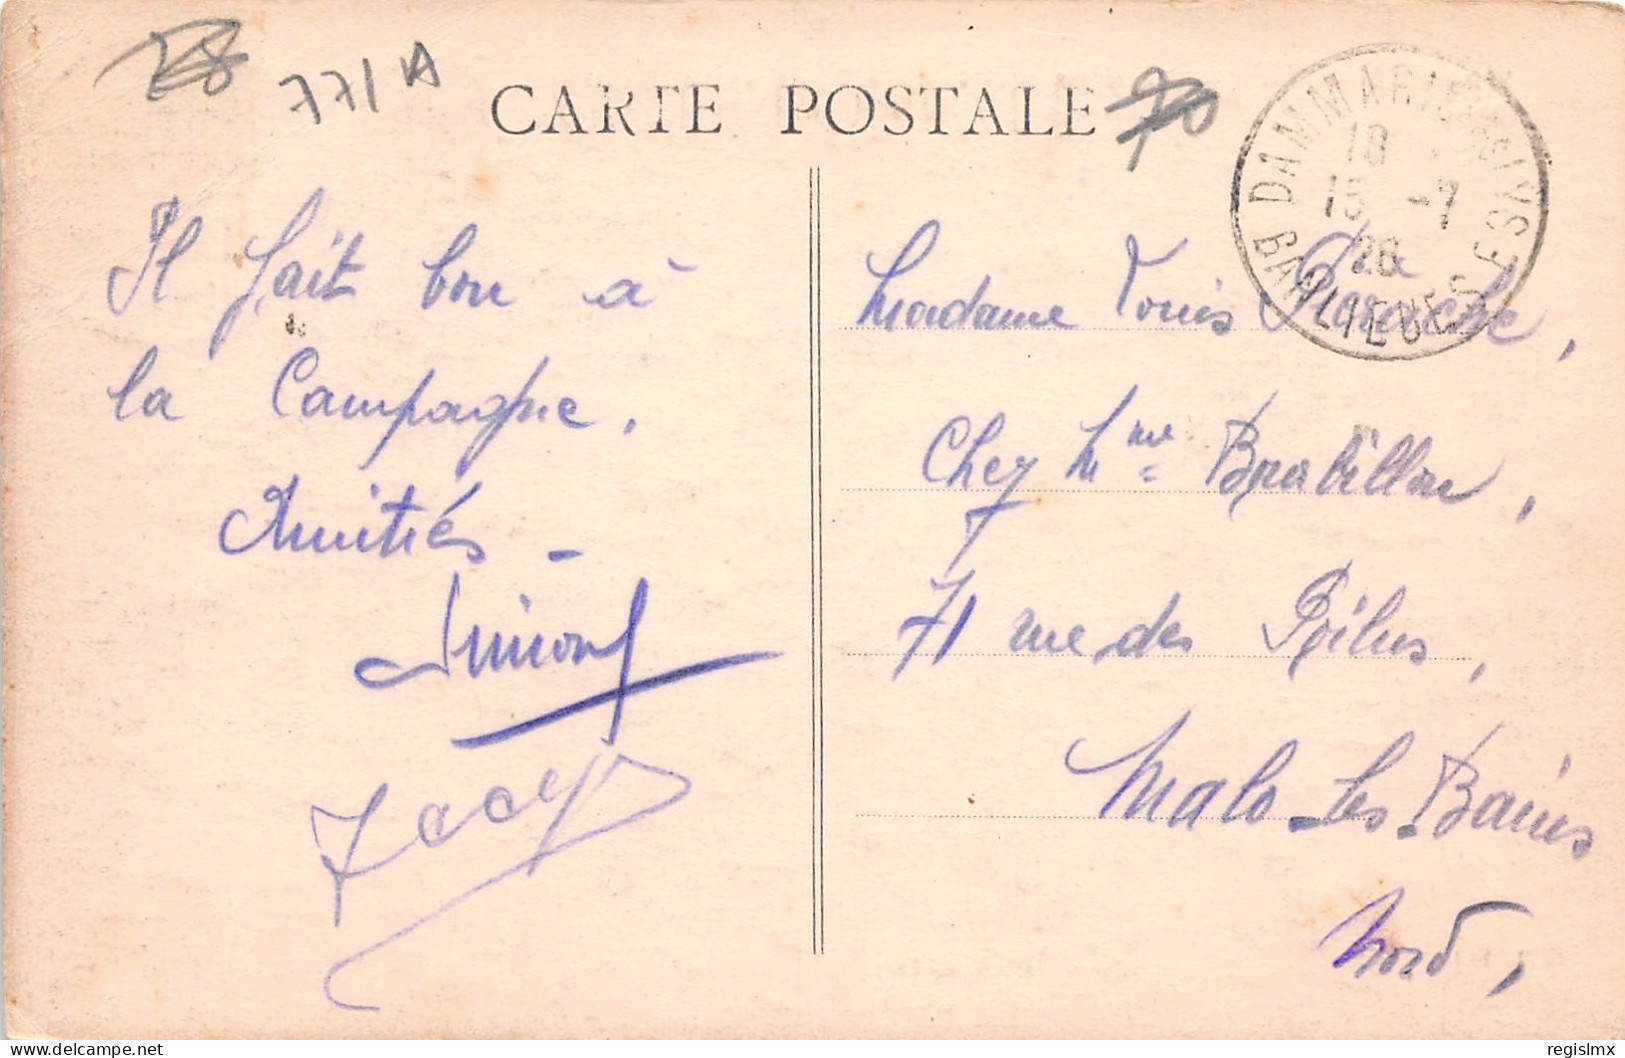 77/A
CARTE POSTALE
70
DAMMARIE-LES-LYS
18
15 -7
28
BANLIEUES
Il fait bon à
la Campagne.
Amitiés -
Simone
Jacq
Madame Louis
Chez Mme
71 rue des Poilus,
Malo-les-Bains
Nord,
regislmx